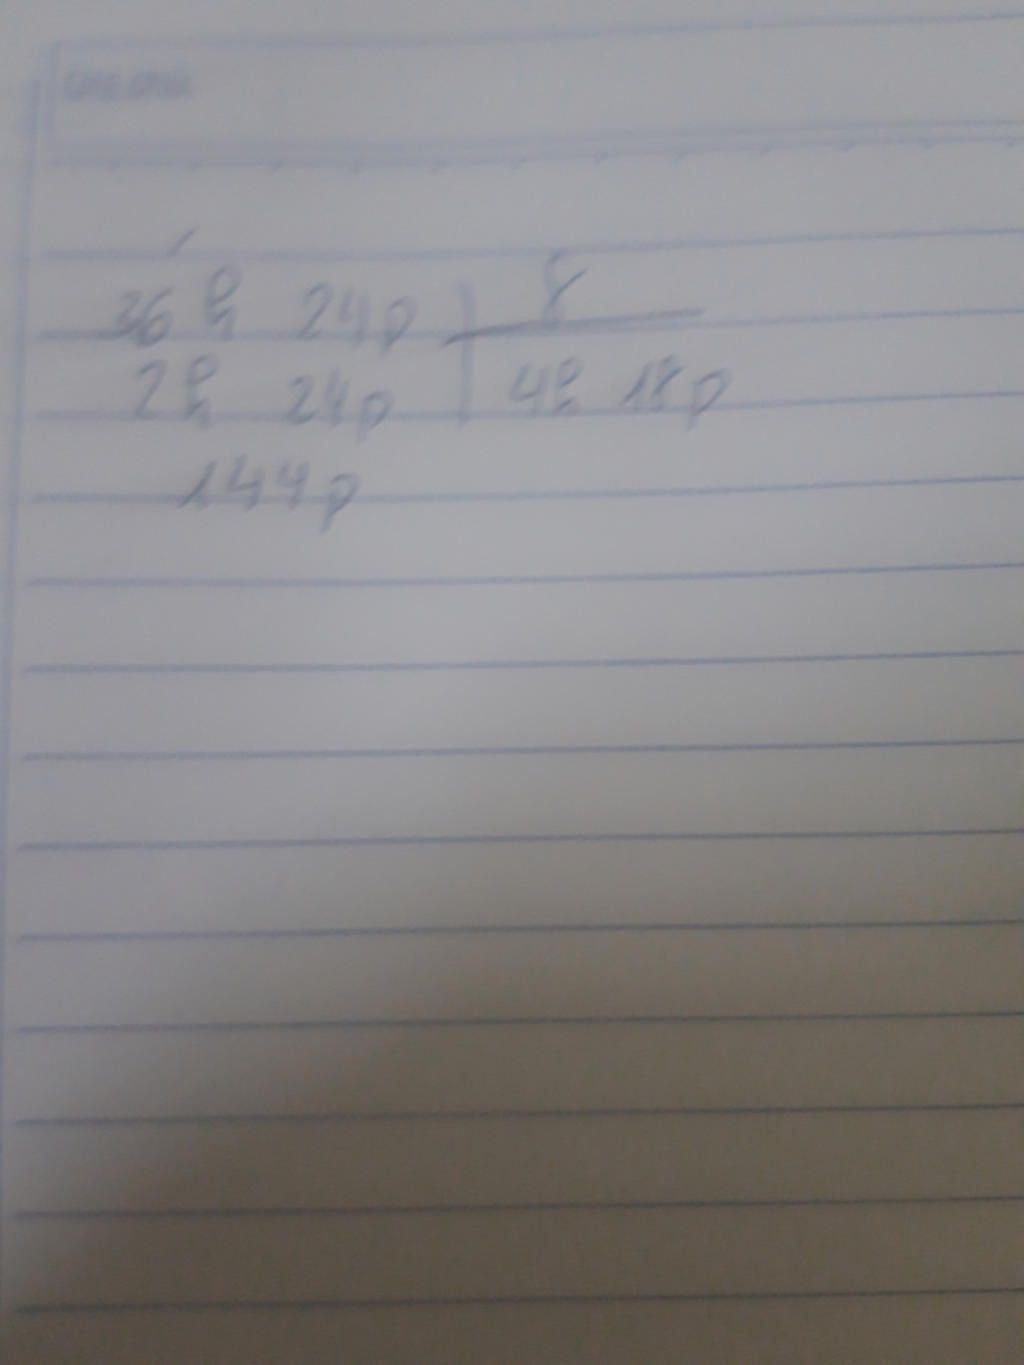 36h 24p 8
2h 24p 4h 18p
144p